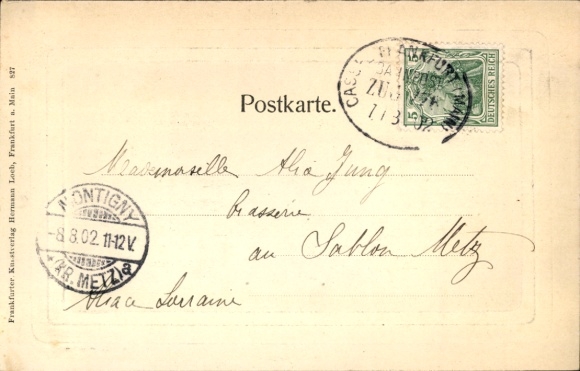 CASSEL FRANKFURT (MAIN)
BAHNPOST
ZUG
7.8.02
5 5
DEUTSCHES REICH
Postkarte.
Mademoiselle Alia Jung
Brasserie
au Sablon Metz
Alsace Lorraine
MONTIGNY
-8.8.02.11-12V.
* (KR. METZ) a
Frankfurter Kunstverlag Hermann Loeb, Frankfurt a. Main 827